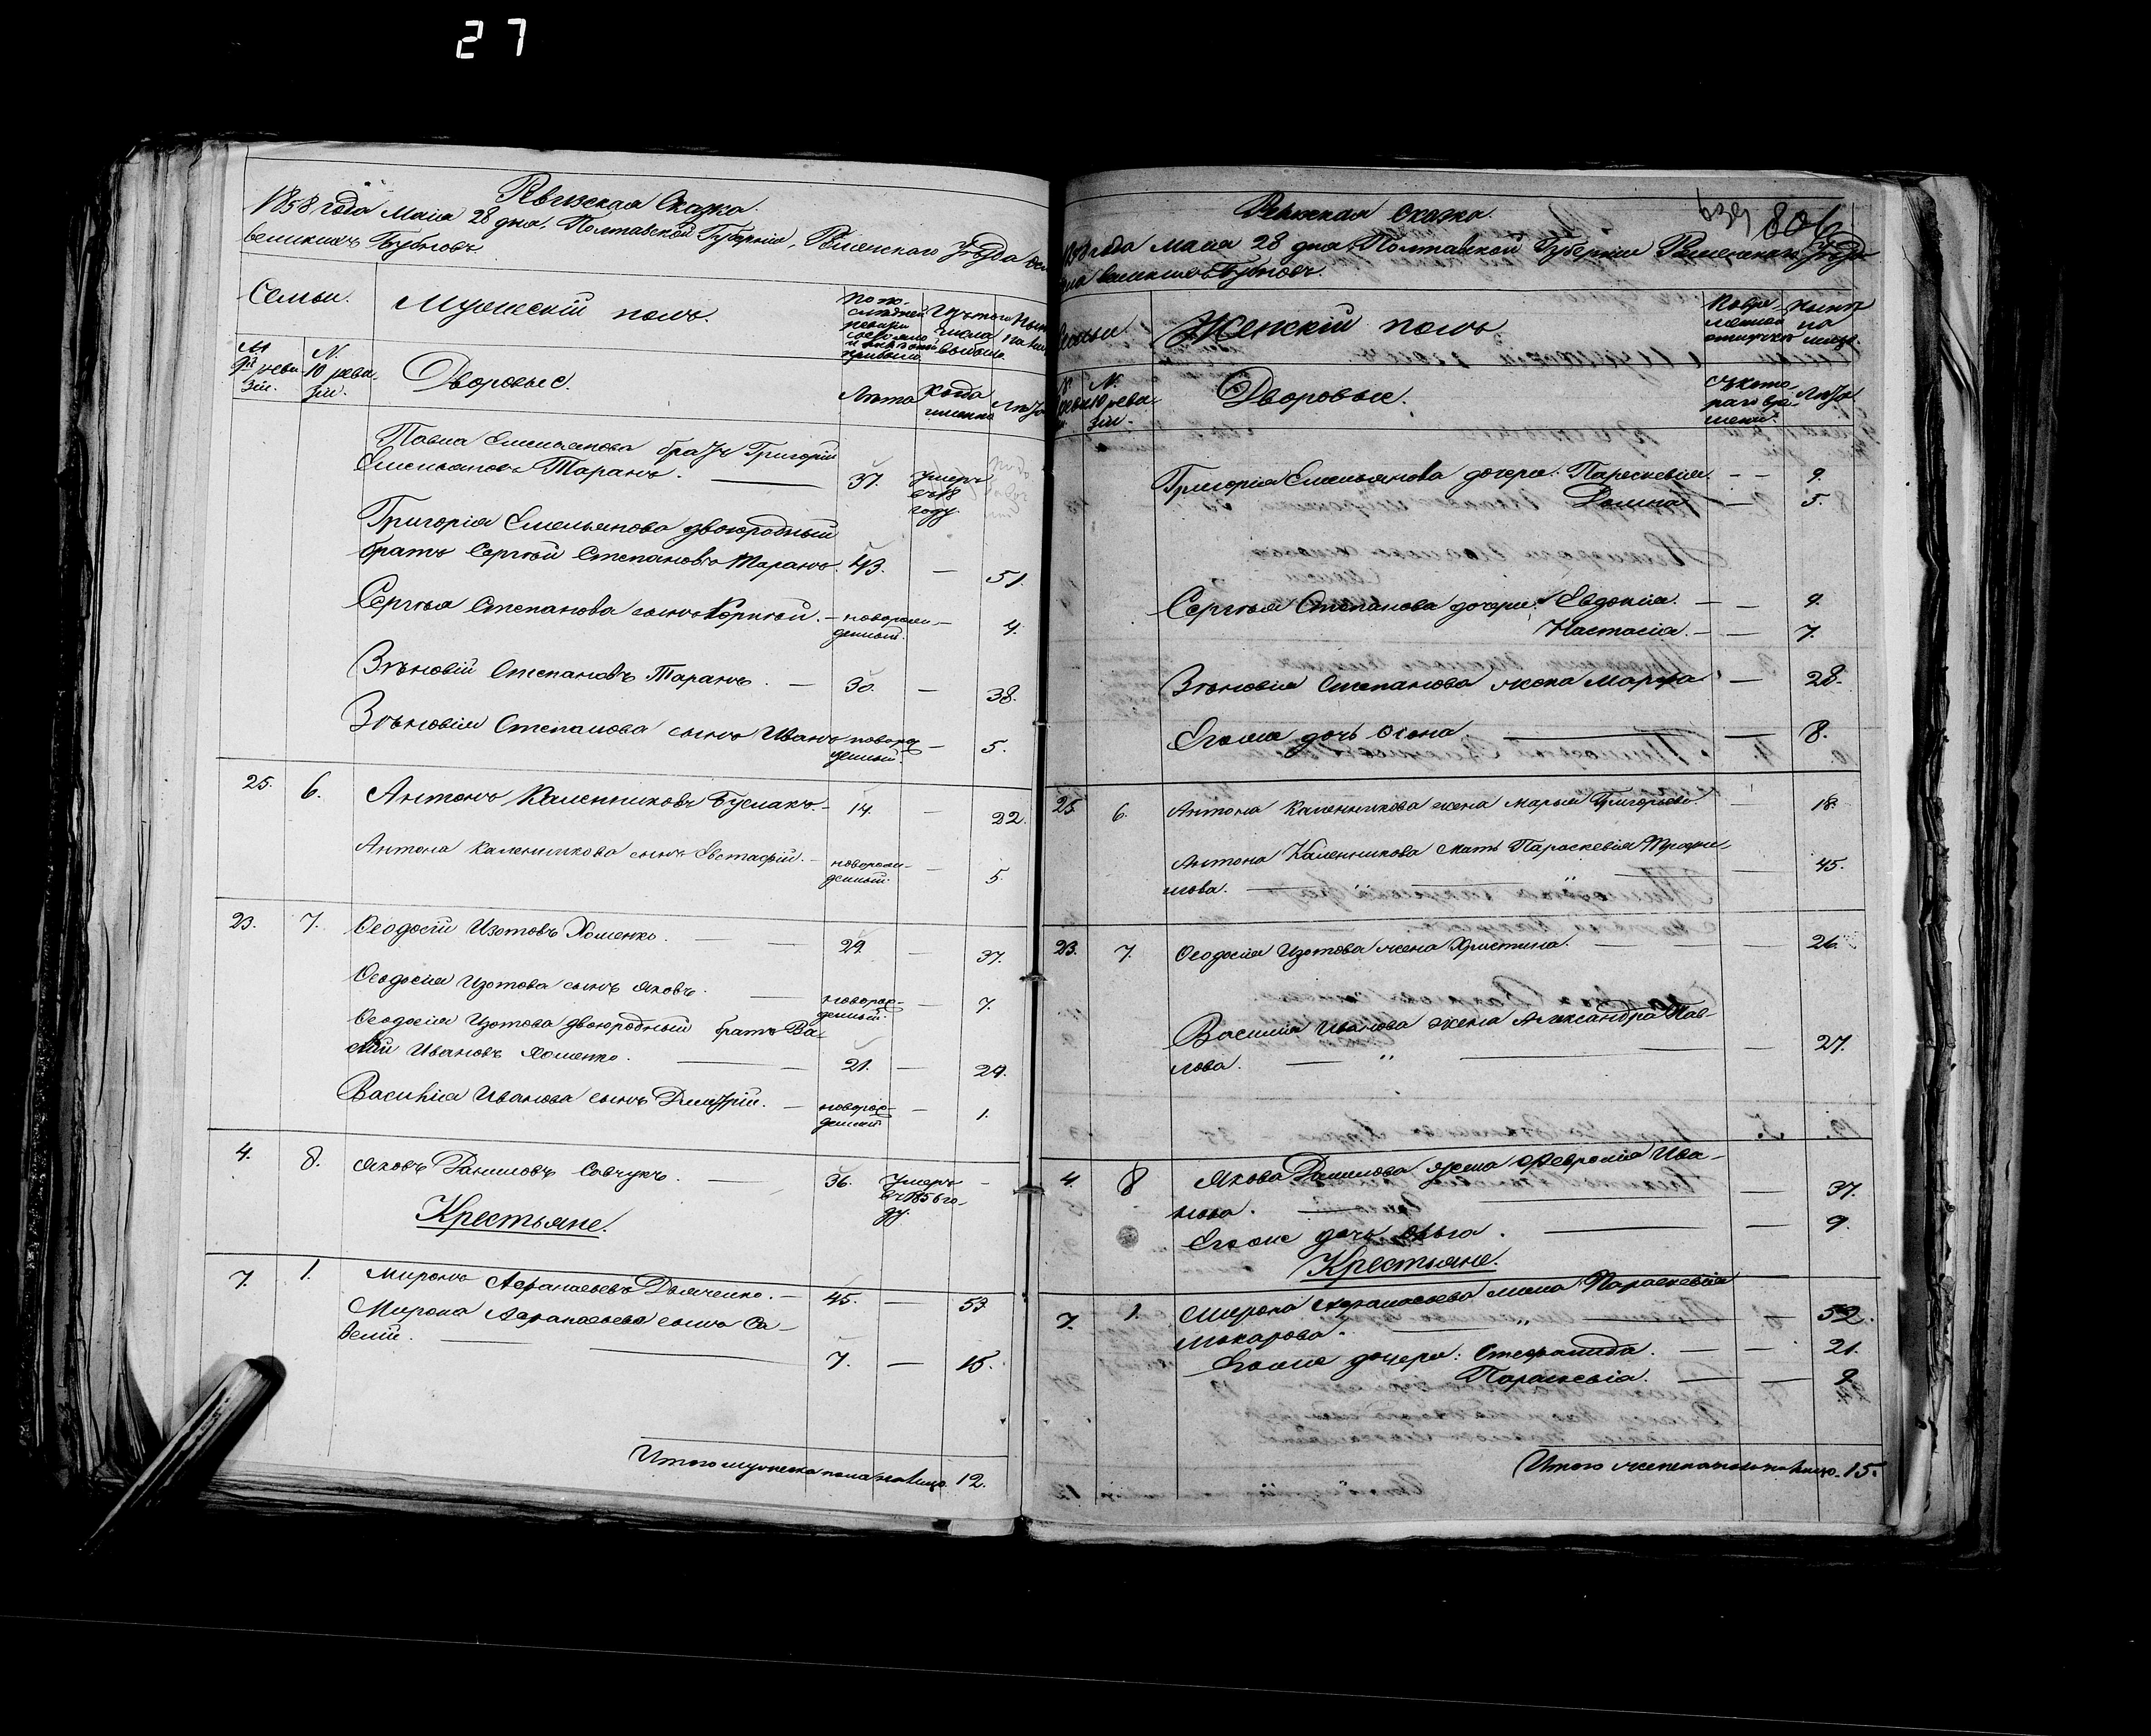 27
Ревизская Сказка.
1858 года Маия 28 дня, Полтавской Губерніи, Роменского Уѣзда
великихъ Бубновъ.
Семьи.
Мужескій полъ.
Изъ того числа выбыло
№ 9й ревизіи.
№ 10 ревизіи.
Дворовые.
Лѣта
Когда именно
Лѣта
Павла Емельянова братъ Григорій
Емельяновъ Таранъ. 37. Умеръ
году
Григорія Емельянова двоюродный
братъ Сергѣй Степановъ Таранъ. 43. — 51.
Сергѣя Степанова сынъ Корнѣй. — новорожденный. — 4.
Зѣновій Степановъ Таранъ. — 30. — 38.
Зѣновія Степанова сынъ Иванъ новорожденный. — 5.
25. 6. Антонъ Каленниковъ Буглакъ. — 14. — 22.
Антона Каленникова сынъ Евстафій. — новорожденный. — 5.
23. 7. Ѳеодосій Изотовъ Хоменко. — 29. — 37.
Ѳеодосія Изотова сынъ Яковъ. — новорожденный. — 7.
Ѳеодосія Изотова двоюродный братъ Ва-
силій Ивановъ Хоменко. — 21. — 29.
Василія Иванова сынъ Дмитрій. — новорожденный — 1.
4. 8. Яковъ Даниловъ Савчукъ. — 36. Умеръ въ 1856 го-
ду. —
Крестьяне.
7. 1. Миронъ Афанасьевъ Дьяченко. — 45. — 53.
Мирона Афанасьева сынъ Са-
велій. — 7. — 15.
Итого мужеска пола на лицо. 12.
Ревизская Сказка.
639 806
1858 года Маия 28 дня, Полтавской Губерніи Роменского Уѣзда
великихъ Бубновъ.
Семьи
Женскій полъ
Во временной отлучкѣ
Нынѣ на лицо.
№ 10 ревизіи.
Дворовые.
Съ котораго времени.
Лѣта.
Григорія Емельянова дочери: Параскевія — — 9.
Домна — 5.
Сергѣя Степанова дочери: Евдокія. — — 9.
Настасія. — — 7.
Зѣновія Степанова жена Марфа — 28.
Егоже дочь Олена — — 8.
25 6. Антона Каленникова жена Марья Григорьева. — 18.
Антона Каленникова мать Параскевія Трофи-
мова. — „ — 45.
23. 7. Ѳеодосія Изотова жена Христина. — — 26.
Василія Иванова жена Александра Пав-
лова. — „ — — 27.
4. 8 Якова Данилова жена Февронія Ива-
нова. — 37.
Егоже дочь Ольга. — — 9.
Крестьяне.
7. 1. Мирона Афанасьева жена Параскевія
Макарова. — „ — 52.
Егоже дочери: Стефанида. — — 21.
Параскевія. — — 9
Итого женска пола на лицо. 15.